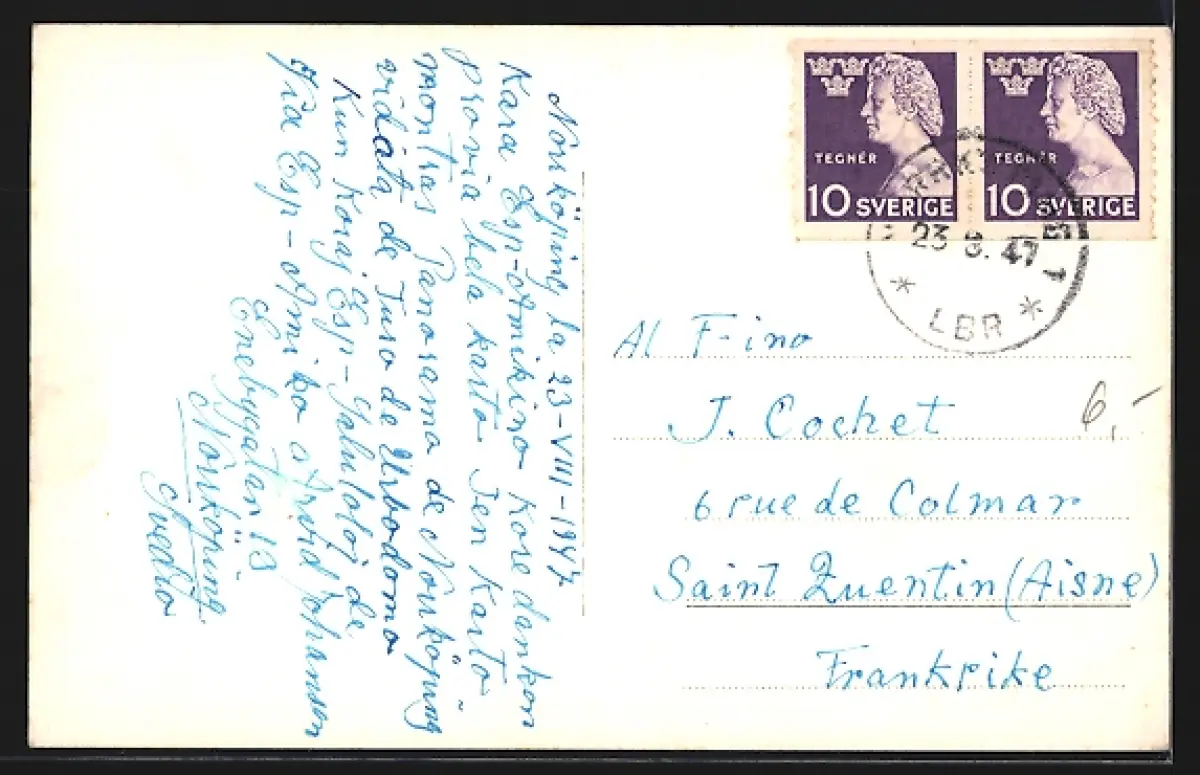 Norrköping la 23-VIII-1947
Kara Esp-Amikino Kore dankon
pro via bela karto Jen Karto
montras Panorama de Norrköping
vidata de Turo de Urbodomo
Kun Koraj Esp-Salutoj de
Via Esp-Amiko Arvid Johansson
Enebygatan 13
Norrköping
Svedio
TEGNÉR
10 SVERIGE
TEGNÉR
10 SVERIGE
23 8. 47
LBR
Al F-ino
J. Cochet
6 rue de Colmar
Saint Quentin (Aisne)
Frankrike
6,-